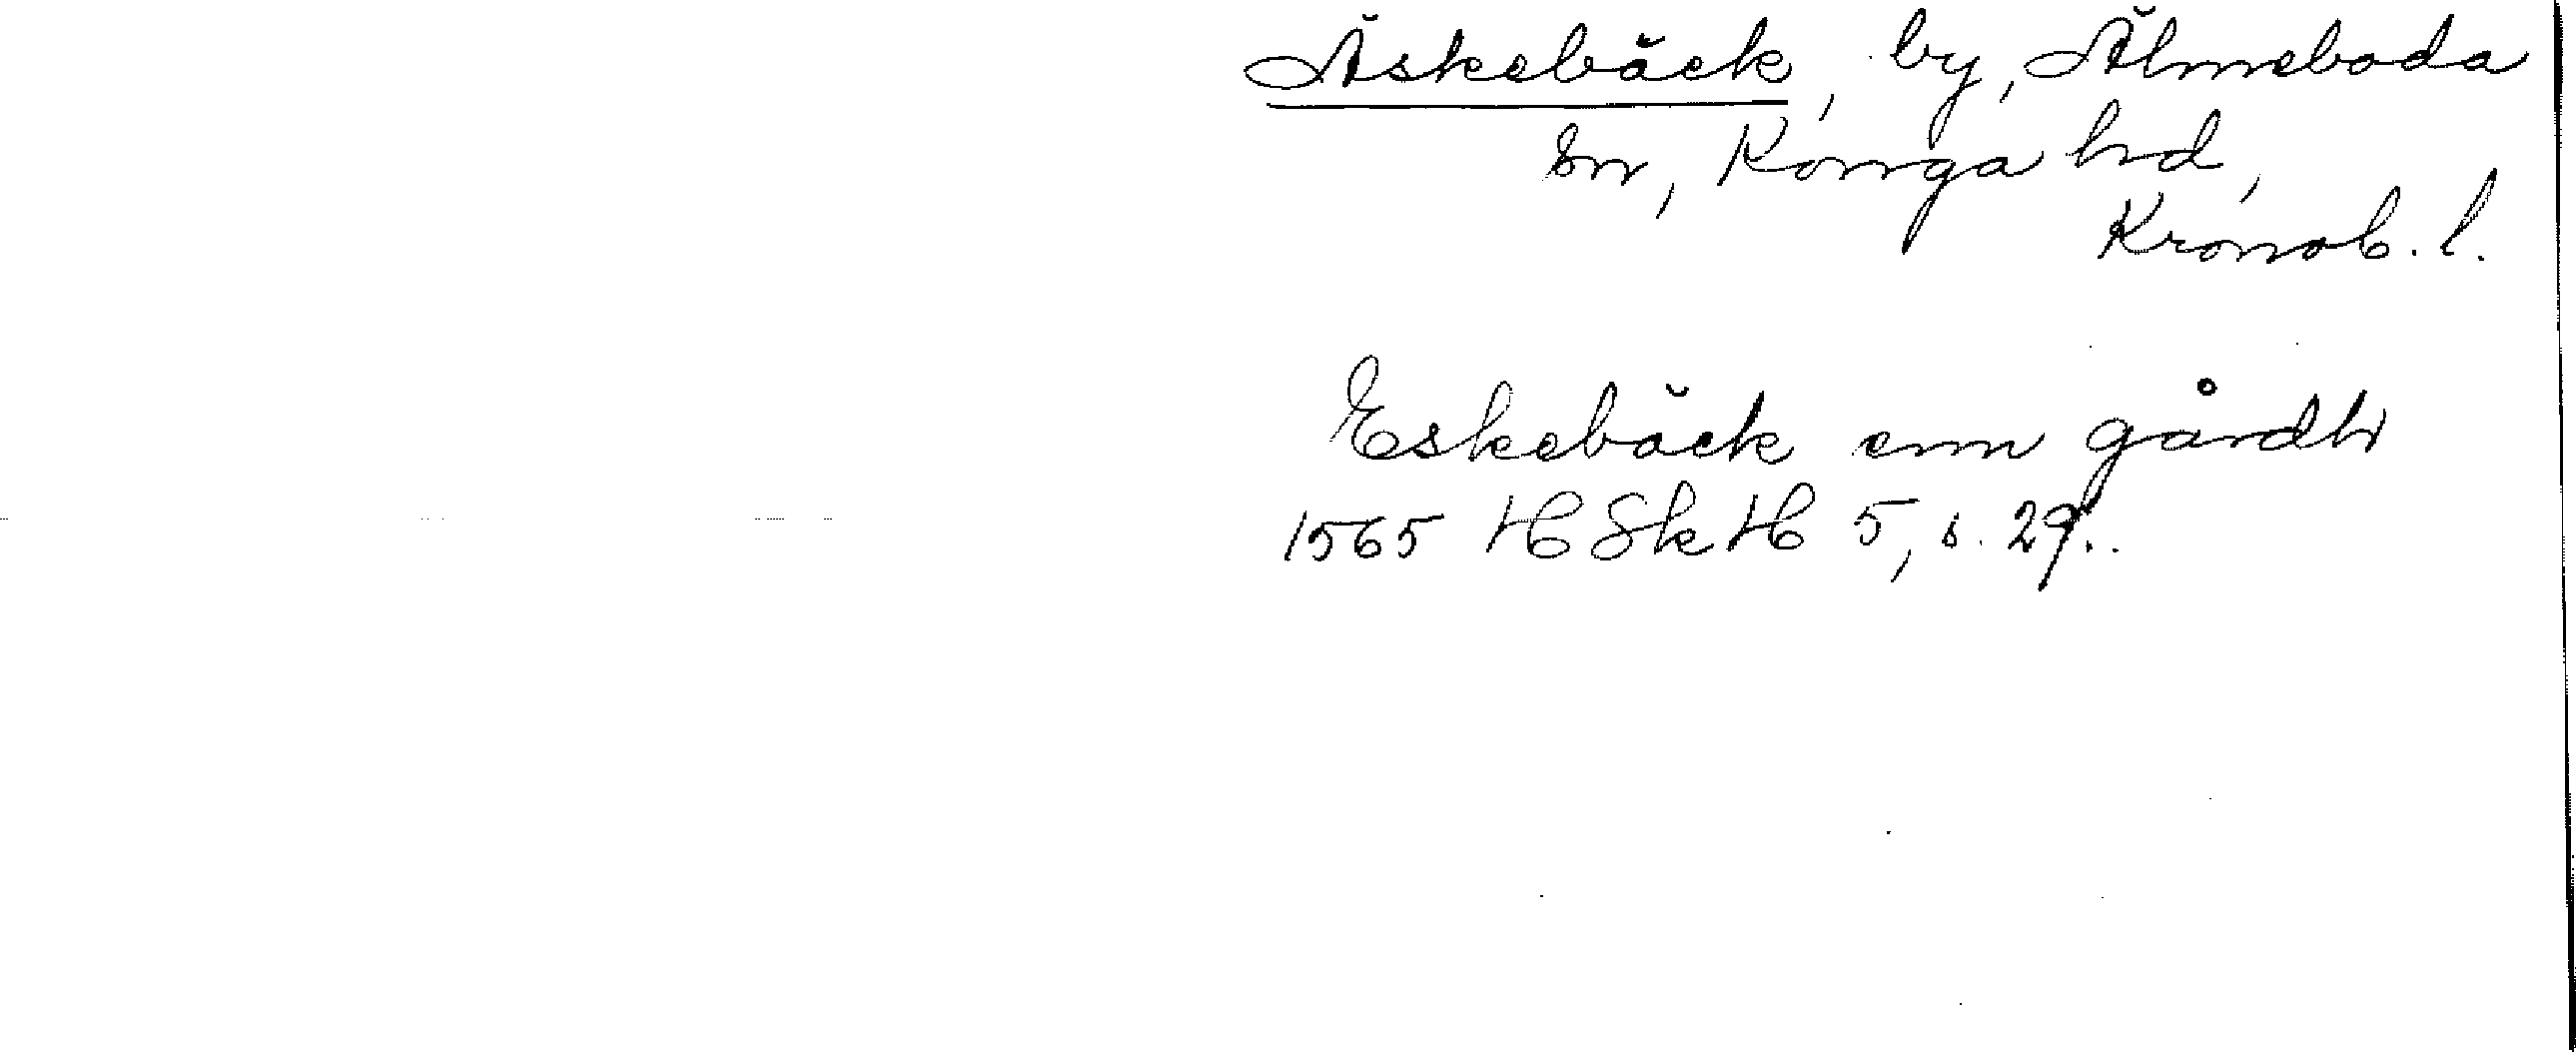 Äskebäck, by, Älmeboda
sn, Konga hd,
Kronob. l.
Eskebäck enn gårdh
1565 HSkH 5, s. 29.